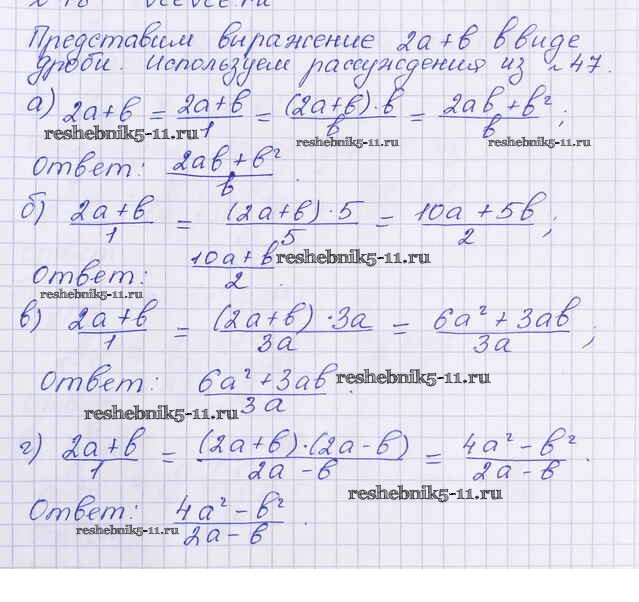 Представим виражение 2a+b в виде
дроби. Используем рассуждения из №47.
а) 2a+b = (2a+b)/1 = ((2a+b)·b)/b = (2ab+b²)/b;
reshebnik5-11.ru reshebnik5-11.ru reshebnik5-11.ru
Ответ: (2ab+b²)/b.
б) (2a+b)/1 = ((2a+b)·5)/5 = (10a+5b)/2;
Ответ: (10a+b)/2. reshebnik5-11.ru
reshebnik5-11.ru
в) (2a+b)/1 = ((2a+b)·3a)/3a = (6a²+3ab)/3a;
Ответ: (6a²+3ab)/3a. reshebnik5-11.ru
reshebnik5-11.ru
г) (2a+b)/1 = ((2a+b)·(2a-b))/(2a-b) = (4a²-b²)/(2a-b).
reshebnik5-11.ru
Ответ: (4a²-b²)/(2a-b).
reshebnik5-11.ru